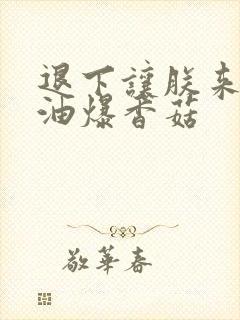 退下讓朕来
油爆香菇
敬華春